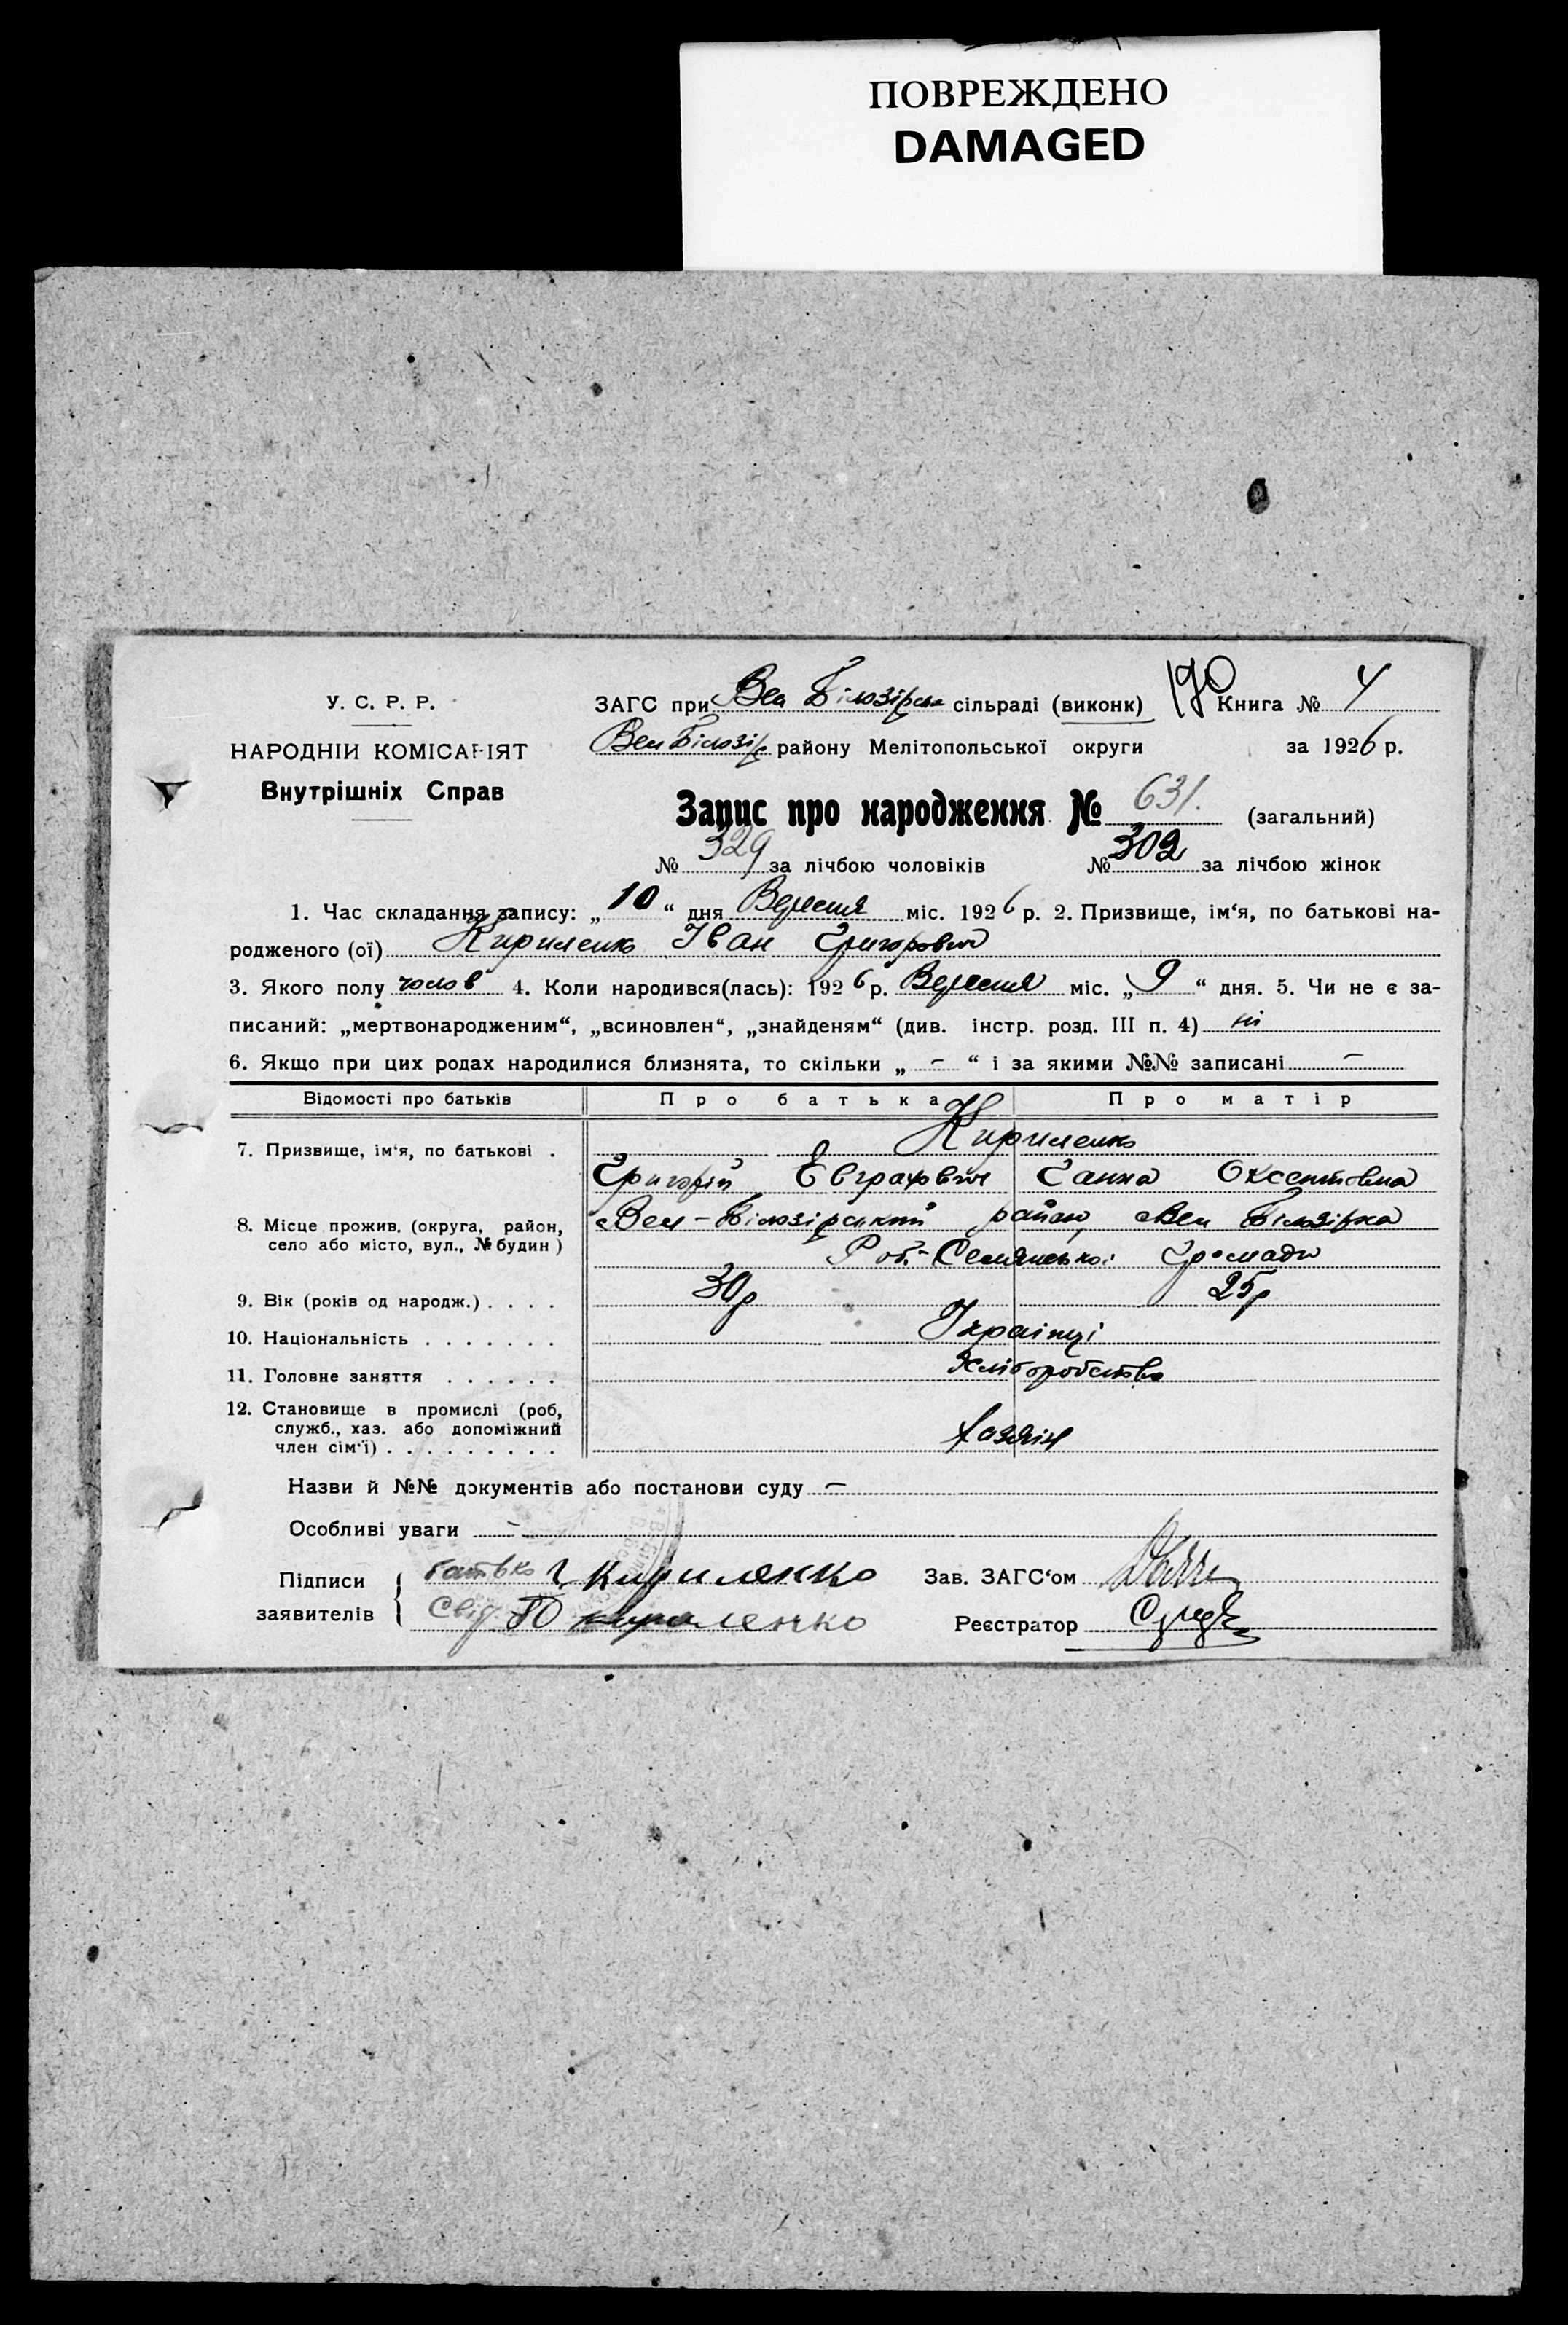 ПОВРЕЖДЕНО
DAMAGED
У. С. Р. Р.
НАРОДНІЙ КОМІСАРІЯТ
Внутрішніх Справ
ЗАГС при Вел Білозірськ сільраді (виконк) 190 Книга № 4
Вел Білозір району Мелітопольської округи за 1926 р.
Запис про народження № 631. (загальний)
№ 329 за лічбою чоловіків № 302 за лічбою жінок
1. Час складання запису: „10“ дня Вересня міс. 1926 р. 2. Призвище, ім‘я, по батькові на-
родженого (ої) Кириленко Іван Григорович
3. Якого полу чолов 4. Коли народився(лась): 1926 р. Вересня міс. „9“ дня. 5. Чи не є за-
писаний: „мертвонародженим“, „всиновлен“, „знайденям“ (див. інстр. розд. III п. 4) ні
6. Якщо при цих родах народилися близнята, то скільки „ – “ і за якими №№ записані –
Відомості про батьків Про батька Про матір
7. Призвище, ім‘я, по батькові . Кириленко
Григорій Евграфович Ганна Оксентовна
8. Місце прожив. (округа, район, село або місто, вул., № будин ) Вел-Білозірський район, Вел Білозірка
Роб.-Селянської Громади
9. Вік (років од народж.) . . . . 30р 25р
10. Національність . . . . . . . Українці
11. Головне заняття . . . . . . Хліборобство
12. Становище в промислі (роб,
служб., хаз. або допоміжний
член сім‘ї) . . . . . . . . . хазяїн
Назви й №№ документів або постанови суду –
Особливі уваги –
Підписи
заявителів
батько Г Кириленко Зав. ЗАГС‘ом
Свід. Ю Кириленко Реєстратор